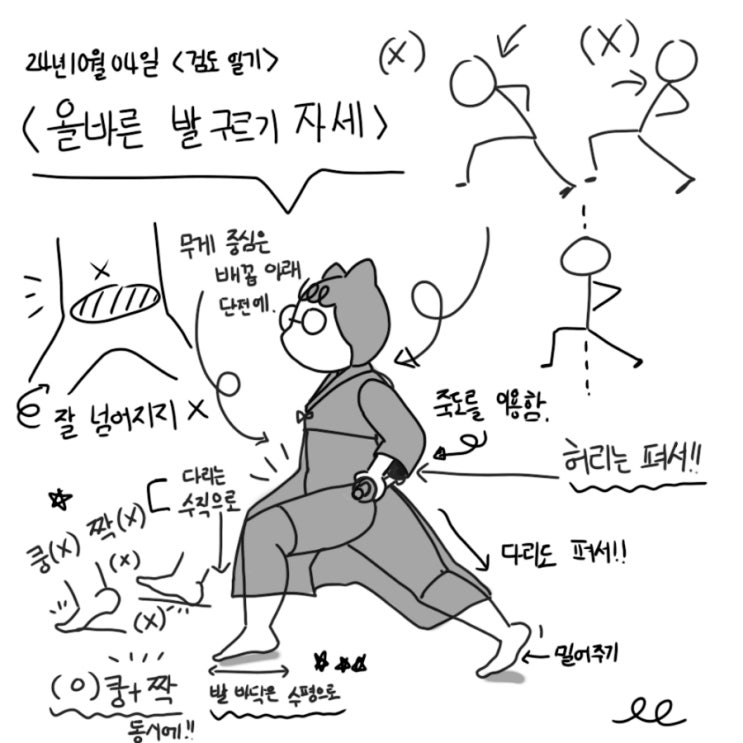 24년10월04일 <검도 일기>
(X)
(X)
<올바른 발 구르기 자세>
무게 중심은
배꼽 아래
단전에.
X
잘 넘어지지 X
죽도를 이용함.
허리는 펴서!!
다리는
수직으로
쿵(X) 짝(X)
(X)
(X)
다리도 펴서!!
밀어주기
(O) 쿵+짝
동시에!!
발 바닥은 수평으로